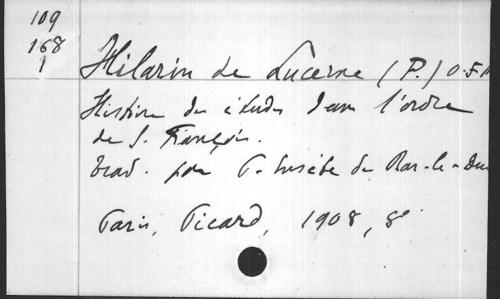 109
168
1
Hilarin de Lucerne (P.) O.F.M
Histoire des études dans l'ordre
de S. François.
trad. par P. Eusèbe de Bar-le-Duc
Paris, Picard, 1908, 8°